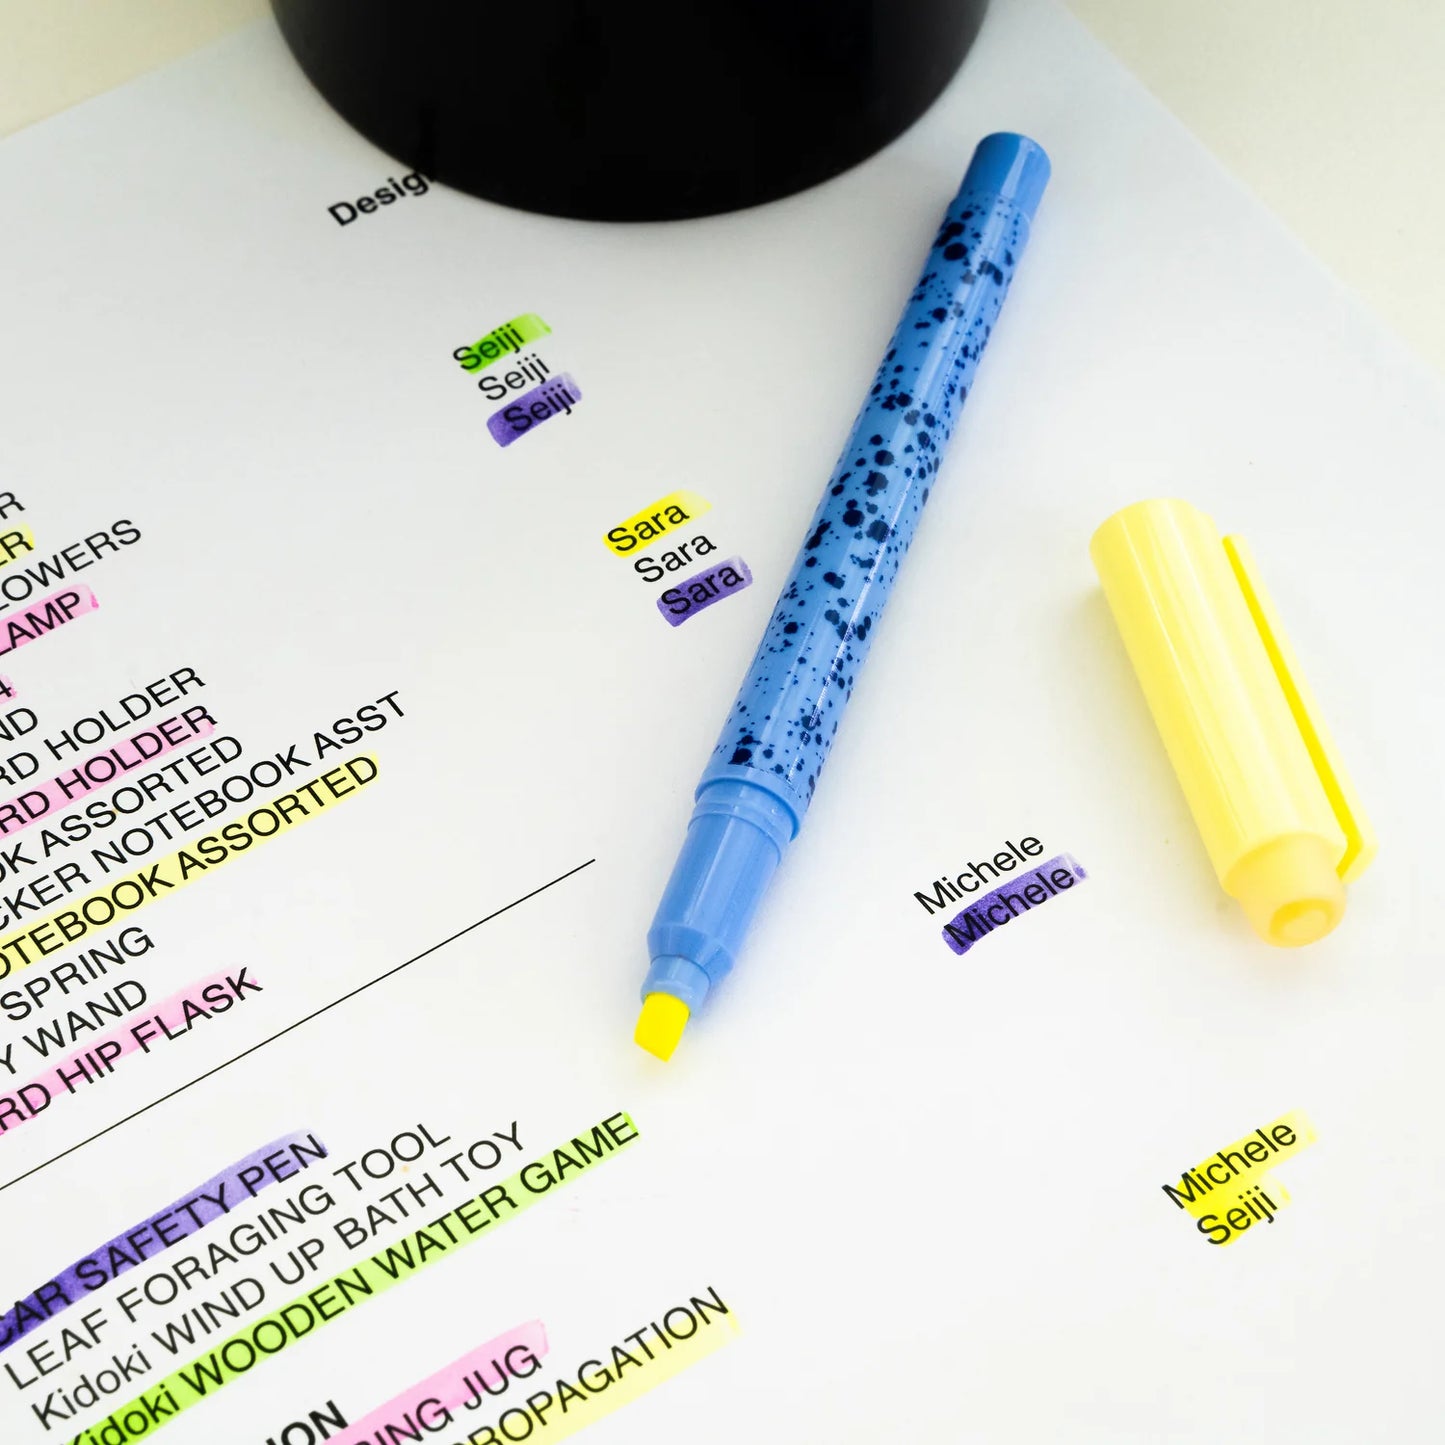 Seiji
Seiji
Seiji
Sara
Sara
Sara
Michele
Michele
Michele
Seiji
LAMP
HOLDER
HOLDER
ASSORTED
NOTEBOOK ASST
NOTEBOOK ASSORTED
SPRING
WAND
HIP FLASK
CAR SAFETY PEN
LEAF FORAGING TOOL
Kidoki WIND UP BATH TOY
Kidoki WOODEN WATER GAME
JUG
PROPAGATION